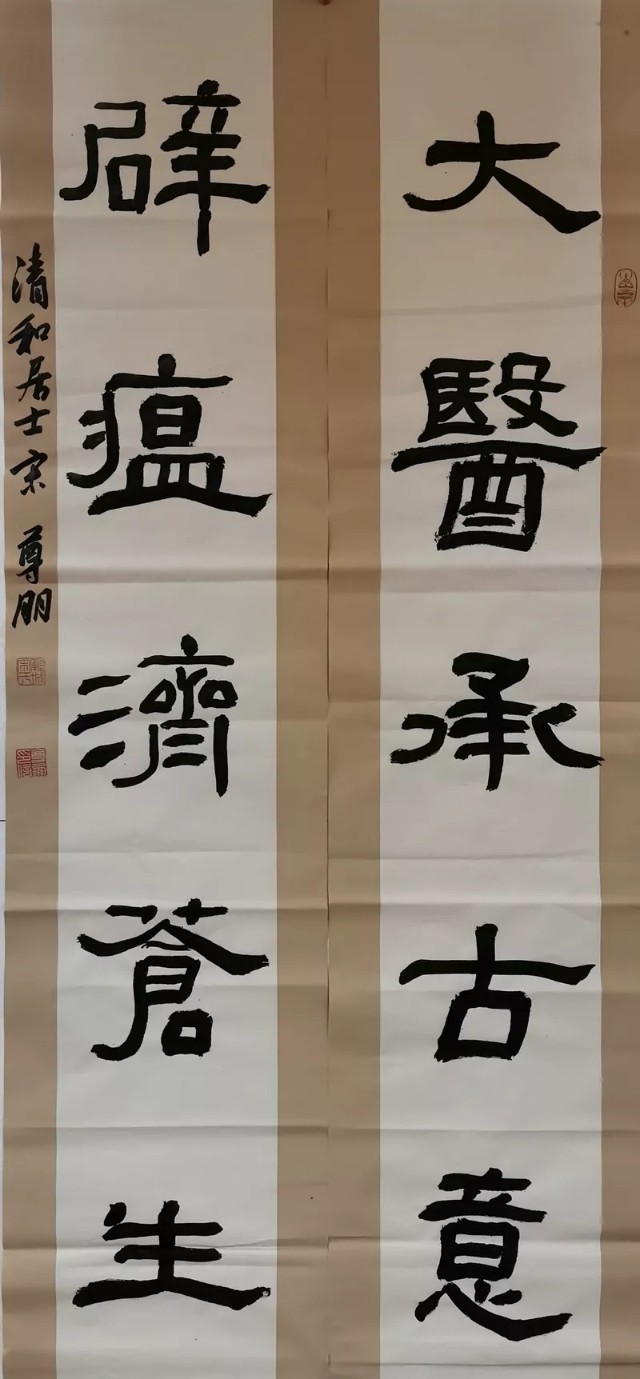 大醫承古意
辟瘟濟蒼生
清和居士宋尊朋